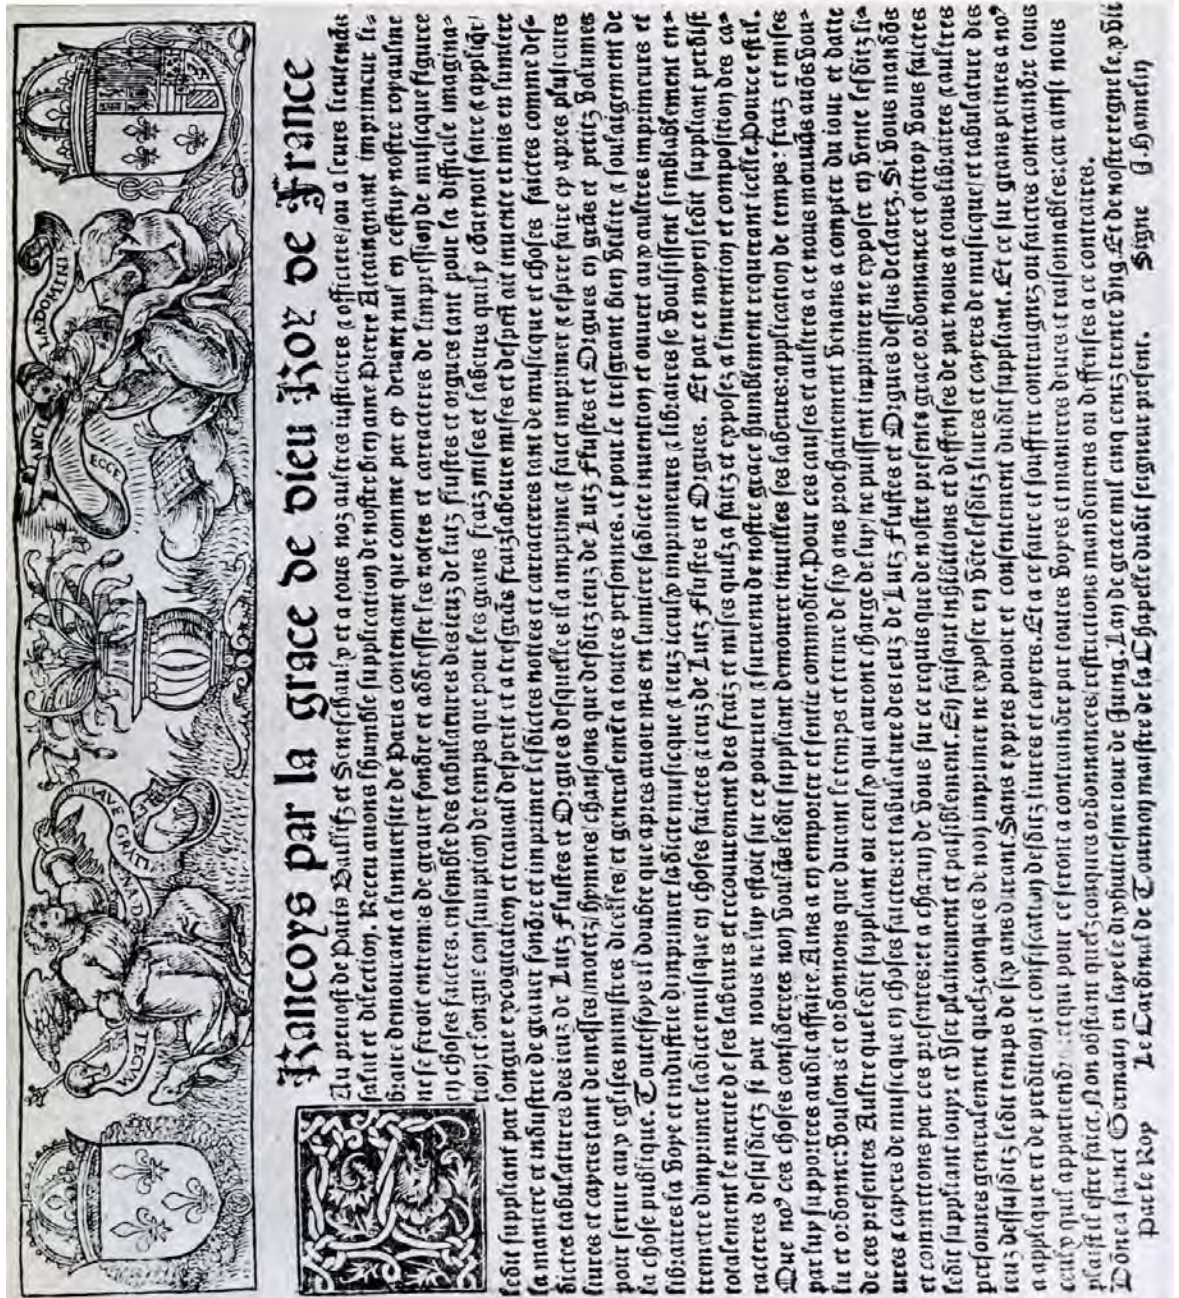 TECVM
AVE GRATI
A.DO
ECCE
ANCI
LA.DOMINI
Francoys par la grace de dieu Roy de France
Au preuost de Paris Baillifz et Seneschaulx et a tous noz aultres iusticiers & officiers/ou a leurs lieutenās
salut et dilection. Receu auons lhumble supplication de nostre bien ame Pierre Attaingnant imprimeur li=
braire demourant a luniuersite de Paris contenant que comme par cy deuant nul en cestuy nostre royaulme
ne se seroit entremis de grauer fondre et addresser les nottes et caracteres de limpression de musicque figuree
en choses faictes, ensemble des tabulatures des ieuz de lutz flustes et orgues tant pour la difficile imagina=
tion et longue consumption de temps que pour les grans fraiz mises et labeurs quil y cōuenoit faire & appliqr/
ledit suppliant par longue excogitation et trauail desperit et a tresgrās fraiz labeurs mises et despēs ait inuente et mis en lumiere
la maniere et industrie de grauer fondre et imprimer lesdictes nottes et carracteres tant de musicque et choses faictes comme des=
dictes tabulatures des ieuz de Lutz Flustes et Orgues desquelles il a imprime & faict imprimer & espere faire cy apres plusieurs
liures et cayers tant de messes/motetz/hymnes chansons que desditz ieuz de Lutz Flustes et Orgues en grās et petitz volumes
pour seruir aux eglises ministres dicelles/et generalemēt a toutes personnes. et pour le tresgrant bien vtilite & soulaigement de
la chose publique. Toutesfoys il doubte que apres auoir mis en lumiere sadicte inuention et ouuert aux aultres imprimeurs et
libraires la voye et industrie dimprimer ladicte musicque & ieuz iceulx imprimeurs & libraires se voulsissent semblablement en=
tremettre dimprimer ladicte musique en choses faictes & ieuz de Lutz Flustes et Orgues. Et par ce moyen ledit suppliant perdist
totalement le merite de ses labeurs et recouurement des fraiz et mises quil a faitz et exposez a linuention et composition des ca=
racteres dessusdictz si par nous ne luy estoit sur ce pourueu & suruenu de nostre grace humblement requerant icelle. Pource est il.
Que noꝰ ces choses considerees non voulās ledit suppliant demourer inutilles ses labeurs: application de temps: fraiz et mises
par luy supportees audit affaire. Ains a en emporter et sentir commodite. Pour ces causes et aultres a ce nous mouuās auōs vou=
lu et ordonne: voulons et ordonnons que durant le temps et terme de six ans prochainement venans a compter du iour et datte
de ces presentes Aultre que ledit suppliant ou ceulx qui auront charge de luy/ne puissent imprimer ne exposer en vente lesditz li=
ures & cayers de musicque en choses faictes et tabulature des ieuz de Lutz Flustes et Orgues dessus declarez. Si vous mandōs
et commettons par ces presentes: et a chacun de vous sur ce requis que de nostre presente grace ordonnance et ottroy vous faictes
ledit suppliant iouyr et vser plainement et paisiblement. En faisant inhibitions et deffenses de par nous a tous libraires & aultres
personnes generalement quelzconques de non imprimer ne exposer en vēte lesditz liures et cayers de musicque/et tabulature des
ieuz dessusditz ledit temps de six ans durant. Sans expres pouoir et consentement dudit suppliant. Et ce sur grans peines a noꝰ
a appliquer et de perdition et confiscation desditz liures et cayers. Et a ce faire et souffrir contraignez ou faictes contraindre tous
ceulx quil appartiendra: et qui pour ce seront a contraindre par toutes voyes et manieres deues et raisonnables: car ainsi nous
plaist il estre faict. Non obstant quelzconques ordonnances/restrictions mandemens ou deffenses a ce contraires.
Dōne a sainct Germain en laye le dixhuitiesme iour de Iuing. Lan de grace mil cinq cens trente vng. Et de nostre regne le. xviī
Par le Roy Le Cardinal de Tournon maistre de la Chapelle dudit seigneur present. Signe G hamelin